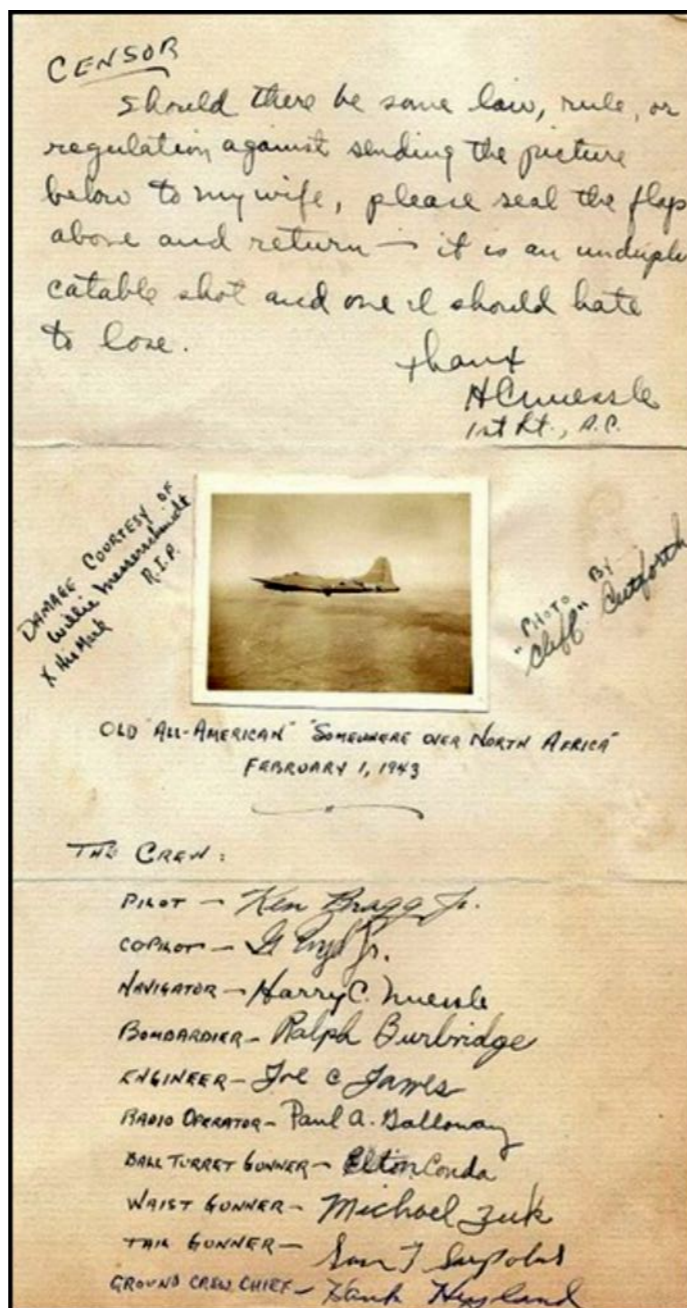 CENSOR
Should there be some law, rule, or
regulation against sending the picture
below to my wife, please seal the flap
above and return — it is an undupli
catable shot and one I should hate
to lose.
thanx
HCNuessle
1st Lt., A.C.
DAMAGE COURTESY OF
Willie Messerschmidt
X His Mark R.I.P.
PHOTO BY
"Cliff" Cutforth
OLD "ALL-AMERICAN" "SOMEWHERE OVER NORTH AFRICA"
FEBRUARY 1, 1943
THE CREW:
PILOT — Ken Bragg Jr.
COPILOT — G Jr.
NAVIGATOR — Harry C. Nuessle
BOMBARDIER — Ralph Burbridge
ENGINEER — Joe C James
RADIO OPERATOR — Paul A. Galloway
BALL TURRET GUNNER — Elton Conda
WAIST GUNNER — Michael Zuk
TAIL GUNNER — Sam T Sarpolus
GROUND CREW CHIEF — Hank Hyland